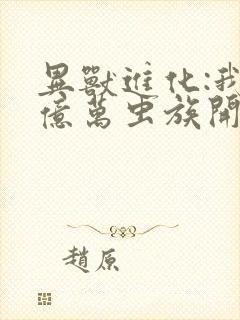 異獸進化:我
億萬虫族開
趙原